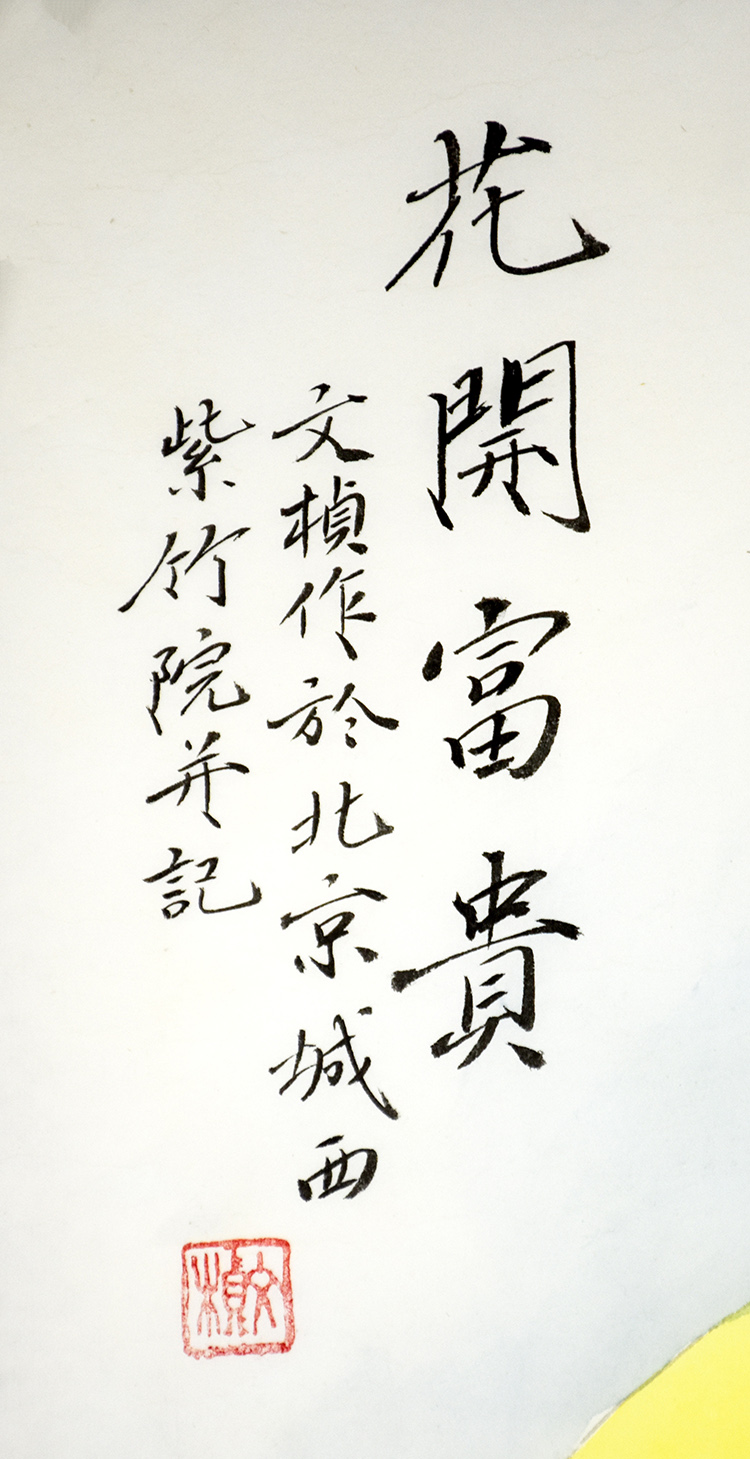 花開富貴
文楨作於北京城西
紫竹院并記
文楨